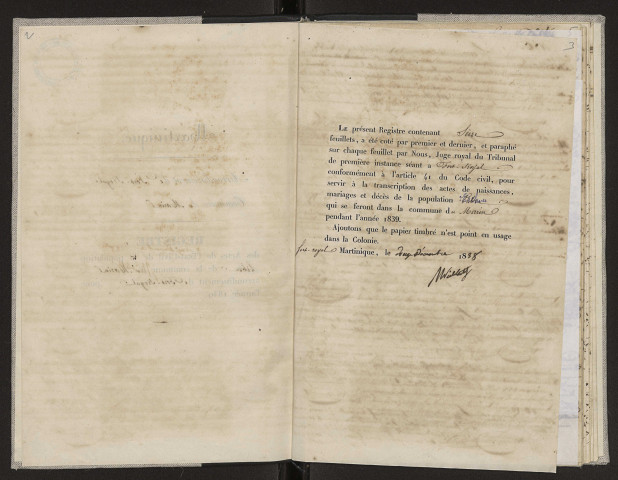 2
3
Le présent Registre contenant
feuillets, a été coté par premier et dernier, et paraphé
sur chaque feuillet par Nous, Juge royal du Tribunal
de première instance séant à Fort-Royal
conformément à l'article 41 du Code civil, pour
servir à la transcription des actes de naissances,
mariages et décès de la population
qui se feront dans la commune d
pendant l'année 1839.
Ajoutons que le papier timbré n'est point en usage
dans la Colonie.
fort royal Martinique, le Décembre 1838